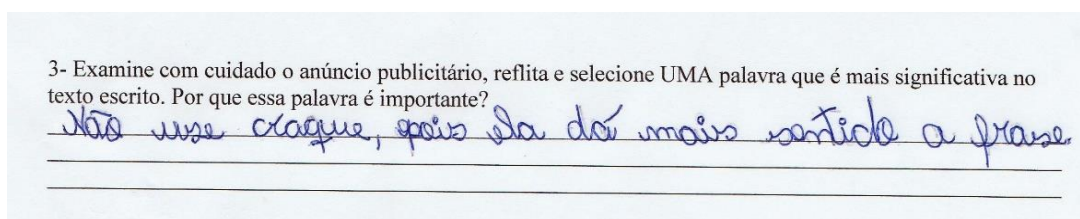 3- Examine com cuidado o anúncio publicitário, reflita e selecione UMA palavra que é mais significativa no
texto escrito. Por que essa palavra é importante?
Não use craque, pois ela dá mais sentido a frase.